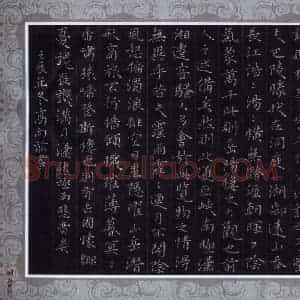 巴陵勝狀在洞庭一湖銜遠山吞
長江浩浩湯湯橫無際涯朝暉夕陰
氣象萬千此則岳陽樓之大觀也前
人之述備矣然則北通巫峽南極瀟
湘遷客騷人多會於此覽物之情得
無異乎若夫霪雨霏霏連月不開陰
風怒號濁浪排空日星隱耀山岳潛
形商旅不行檣傾楫摧薄暮冥冥
虎嘯猿啼登斯樓也則有去國懷鄉
憂讒畏譏滿目蕭然感極而悲者矣
Shufaziliao.com